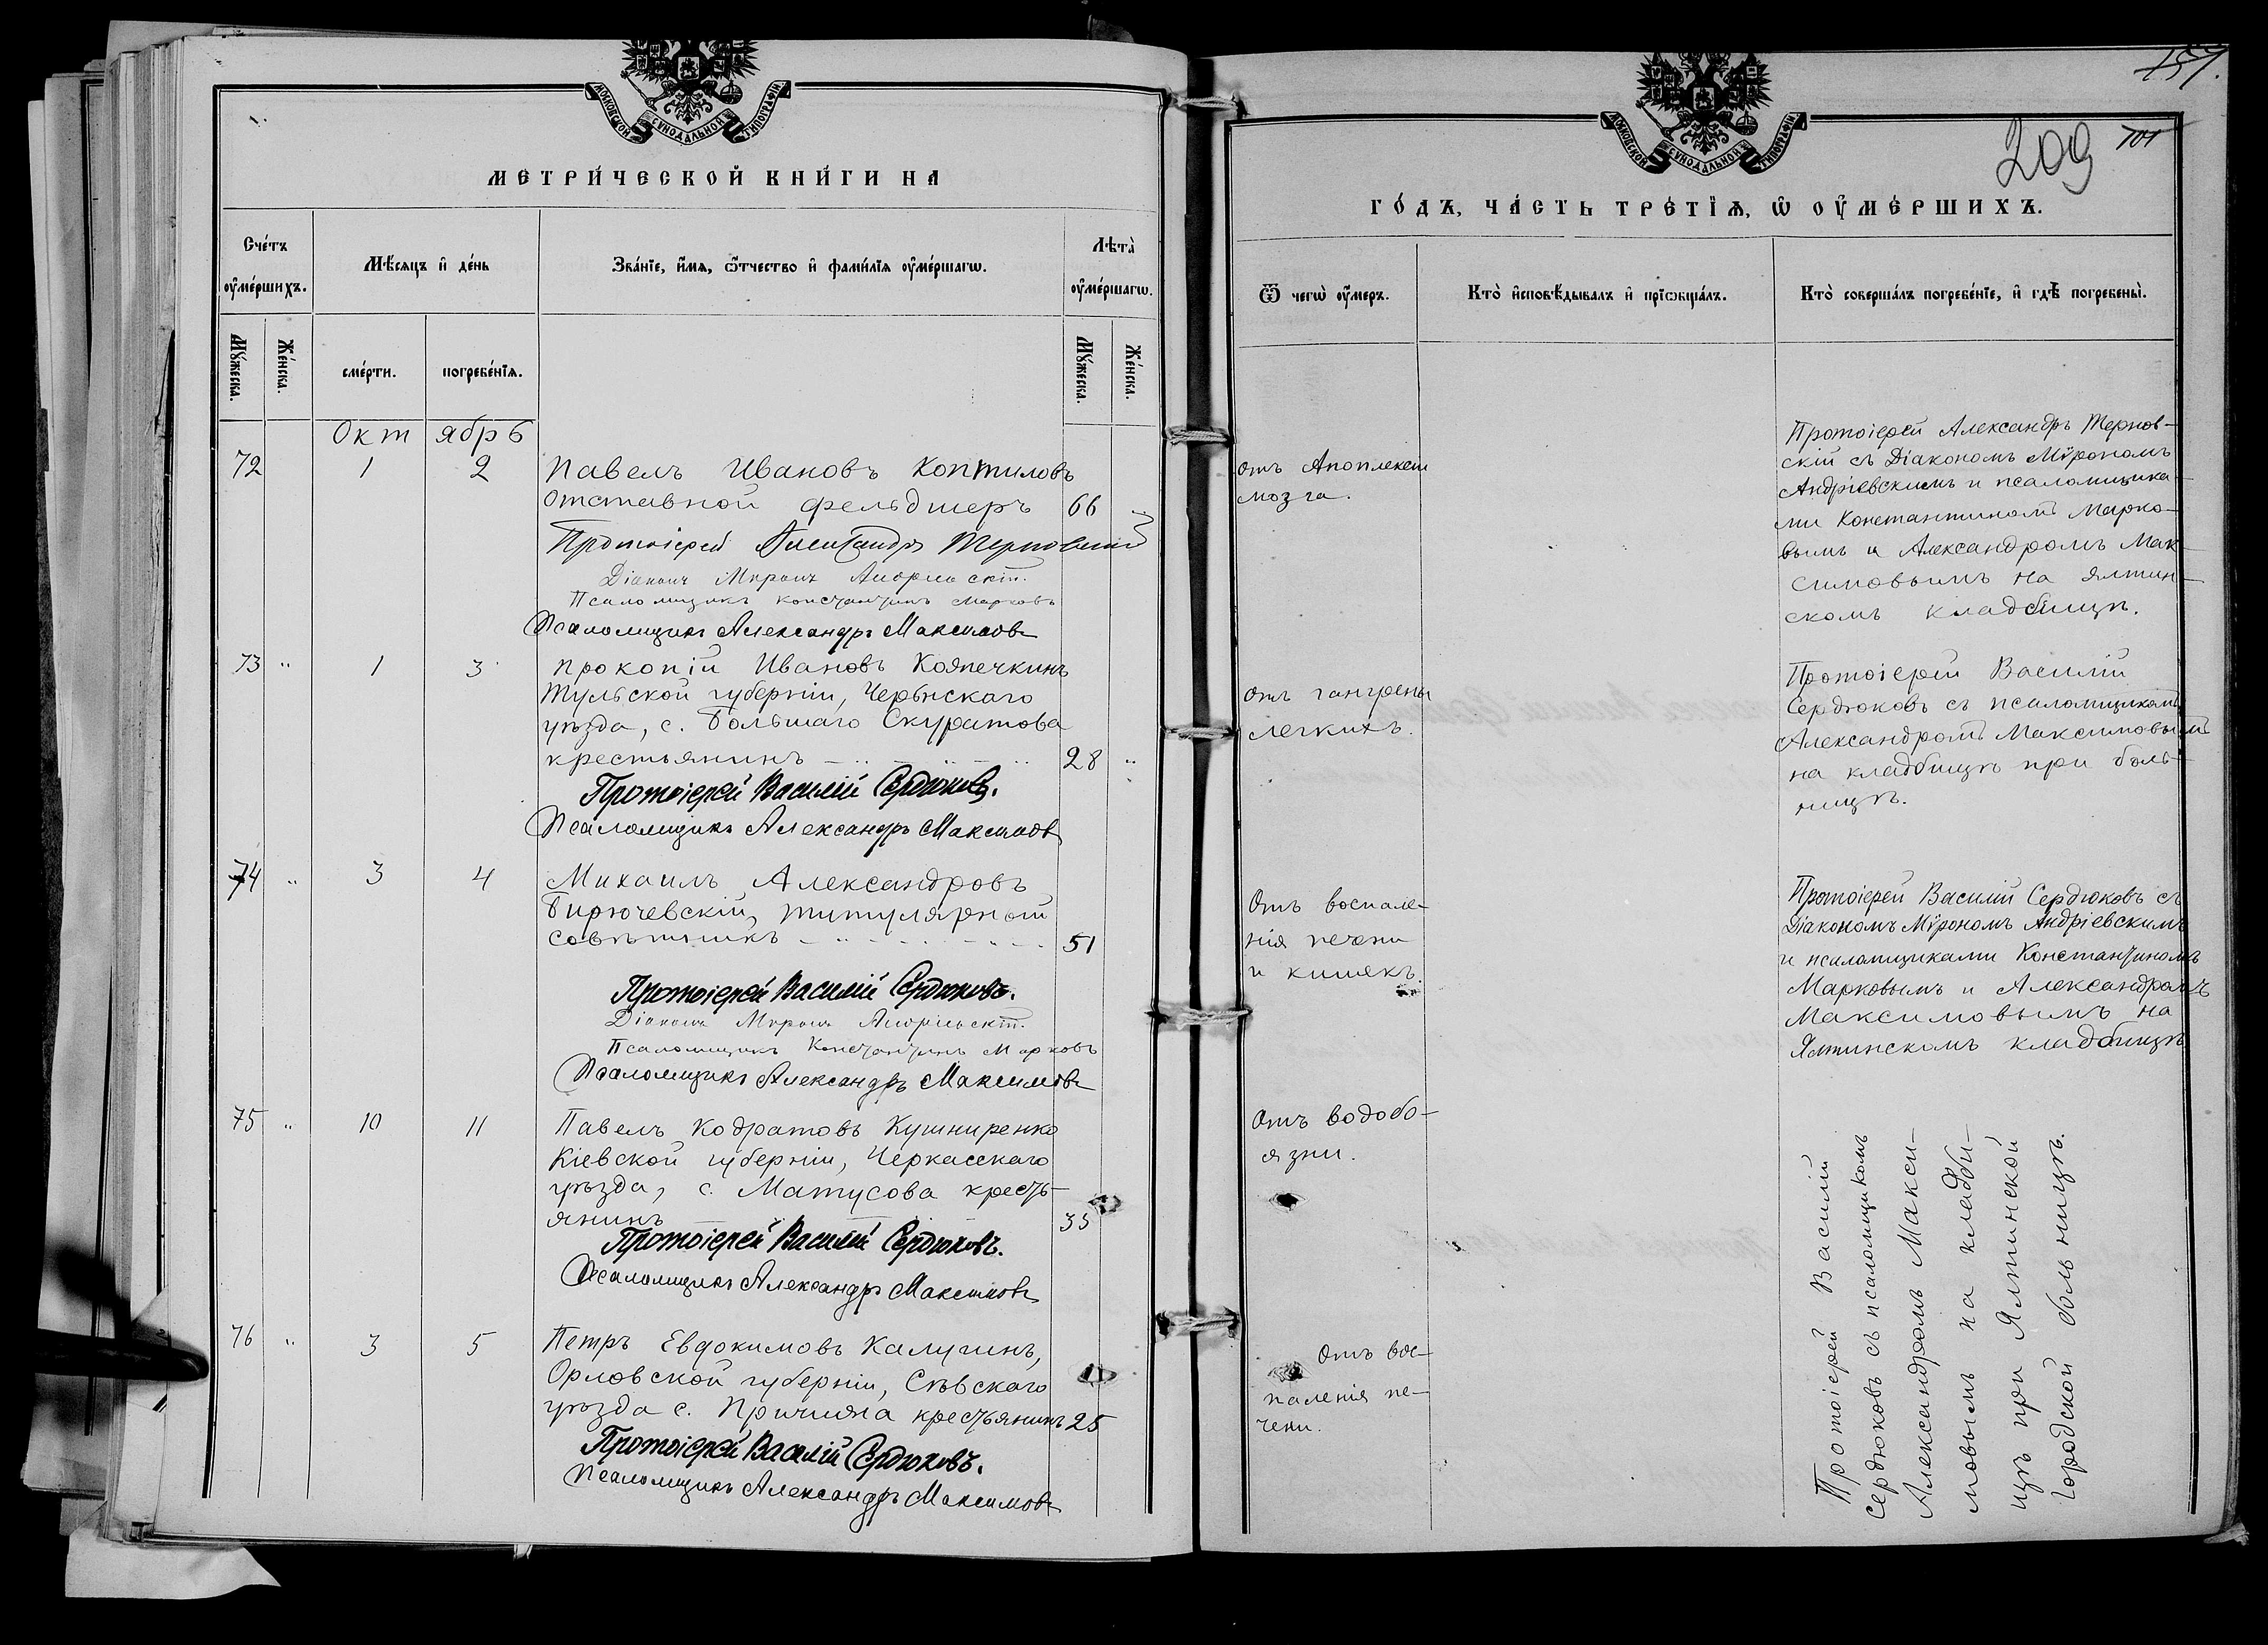 МОСКОВСКОЙ СѴНОДАЛЬНОЙ ТИПОГРАФІИ
МЕТРИ́ЧЕСКОЙ КНИ́ГИ НА
Сче́тъ оу҆ме́ршихъ.
Мѣ́сяцъ и҆ де́нь
Зва́нїе, и҆́мѧ, ѻ҆́тчество и҆ фами́лїѧ оу҆ме́ршагѡ.
Лѣта̀ оу҆ме́ршагѡ.
Му́жеска.
Же́нска.
сме́рти.
погребе́нїѧ.
Му́жеска.
Же́нска.
Окт ябрь
72 1 2 Павелъ Ивановъ Коптиловъ
отставной фельдшеръ 66
Протоіерей Александръ Терновскій
Діаконъ Миронъ Андріевскій.
Псаломщикъ Константинъ Марковъ
Псаломщикъ Александръ Максимовъ
73 " 1 3 Прокопій Ивановъ Коапечкинъ
Тульской губерніи, Чернскаго
уѣзда, с. Большаго Скуратова
крестьянинъ 28 "
Протоіерей Василій Сердюковъ.
Псаломщикъ Александръ Максимовъ
74 " 3 4 Михаилъ Александровъ
Бирючевскій, титулярной
совѣтникъ 51
Протоіерей Василій Сердюковъ.
Діаконъ Миронъ Андріевскій.
Псаломщикъ Константинъ Марковъ
Псаломщикъ Александръ Максимовъ
75 " 10 11 Павелъ Кодратовъ Кушниренко
Кіевской губерніи, Черкасскаго
уѣзда, с. Матусова кресть-
янинъ 35
Протоіерей Василій Сердюковъ.
Псаломщикъ Александръ Максимовъ
76 " 3 5 Петръ Евдокимовъ Калугинъ,
Орловской губерніи, Сѣвскаго
уѣзда с. Причижа крестьянинъ 25
Протоіерей Василій Сердюковъ.
Псаломщикъ Александръ Максимовъ
209
МОСКОВСКОЙ СѴНОДАЛЬНОЙ ТИПОГРАФІИ
ГО́ДЪ, ЧА́СТЬ ТРЕ́ТЇѦ, Ѡ҆ ОУ҆МЕ́РШИХЪ.
Ѿ чегѡ̀ оу҆́меръ.
Кто̀ и҆сповѣ́дывалъ и҆ прїѡбща́лъ.
Кто̀ соверша́лъ погребе́нїе, и҆ гдѣ̀ погребены̀.
отъ Апоплексіи
мозга.
Протоіерей Александръ Тернов-
скій съ Діакономъ Мѵрономъ
Андріевскимъ и псаломщика-
ми Константиномъ Марко-
вымъ и Александромъ Мак-
симовымъ на Ялтин-
скомъ кладбищѣ.
отъ гангрены
легкихъ.
Протоіерей Василій
Сердюковъ съ псаломщикомъ
Александромъ Максимовымъ
на кладбищѣ при боль-
ницѣ.
Отъ воспале-
нія печени
и кишекъ.
Протоіерей Василій Сердюковъ съ
Діакономъ Мѵрономъ Андріевскимъ
и псаломщиками Константиномъ
Марковымъ и Александромъ
Максимовымъ на
Ялтинскомъ кладбищѣ
Отъ водобо-
язни.
Отъ вос-
паленія пе-
чени.
Протоіерей Василій
Сердюковъ съ псаломщикомъ
Александромъ Макси-
мовымъ на кладби-
щѣ при Ялтинской
городской больницѣ.